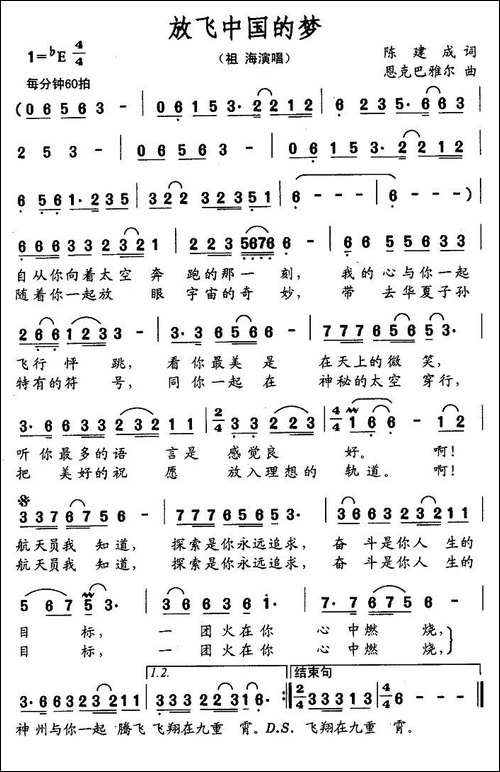 放飞中国的梦
1=♭E 4/4
（祖 海演唱）
陈 建 成 词
恩克巴雅尔 曲
每分钟60拍
( 0 6 5 6 3 | 0 6 1 5 3· 2 2 1 2 | 6 2 3 5· | 0 6 6 5 3 |
2 5 3 - | 0 5 6 5 6 3 - | 0 6 1 5 3· 2 2 1 2 |
6 5 6 1· 2 3 5 | 3 2 2 3 5 | 2 2 3 2 3 5 1 | 6 - - - | 6 - - - )
6 6 6 3 3 2 3 2 1 | 2 2 3 5 6 7 6 6 - | 6 5 5 6 5 5 3
自从你向着太空 奔 跑的那一 刻， 我的心与你一起
随着你一起放 眼 宇宙的奇 妙， 带 去华夏子孙
2 6 6 1 2 3 3 - | 3· 3 6 5 6 6 - | 7 7 7 6 5 6 5 3·
飞行 怦 跳， 看你最美是 在天上的微 笑，
特有的符 号， 同你一起在 神秘的太空 穿行，
3· 6 6 3 3 2 3 2 1 1 | 2/4 3 3 2 2 3 | 4/4 1 6 6 - 1 2
听你最多的语 言是 感觉良 好。 啊！
把 美好的祝 愿 放入理想的 轨道。 啊！
3 3 7 6 7 5 6 - | 7 7 7 6 5 6 5 3· | 3 6 6 3 2 3 2 1 2
航天员我 知道， 探索是你永远追求， 奋 斗是你人 生的
航天员我 知道， 探索是你永远追求， 奋 斗是你人 生的
5 6 7 5 3· | 3 6 6 3 6 1· | 7· 7 6 7 5 6 -
目 标， 一 团火在你 心中燃 烧，
目 标， 一 团火在你 心中燃 烧，
1.2.
结束句
3· 6 6 3 2 3 2 1 1 | 3 3 3 2 2 3 1 6· :‖ 2/4 3 3 3 1 3 | 4/4 6 - - - ‖
神州与你一起 腾飞 飞翔在九重 霄。D.S. 飞翔在九重 霄。